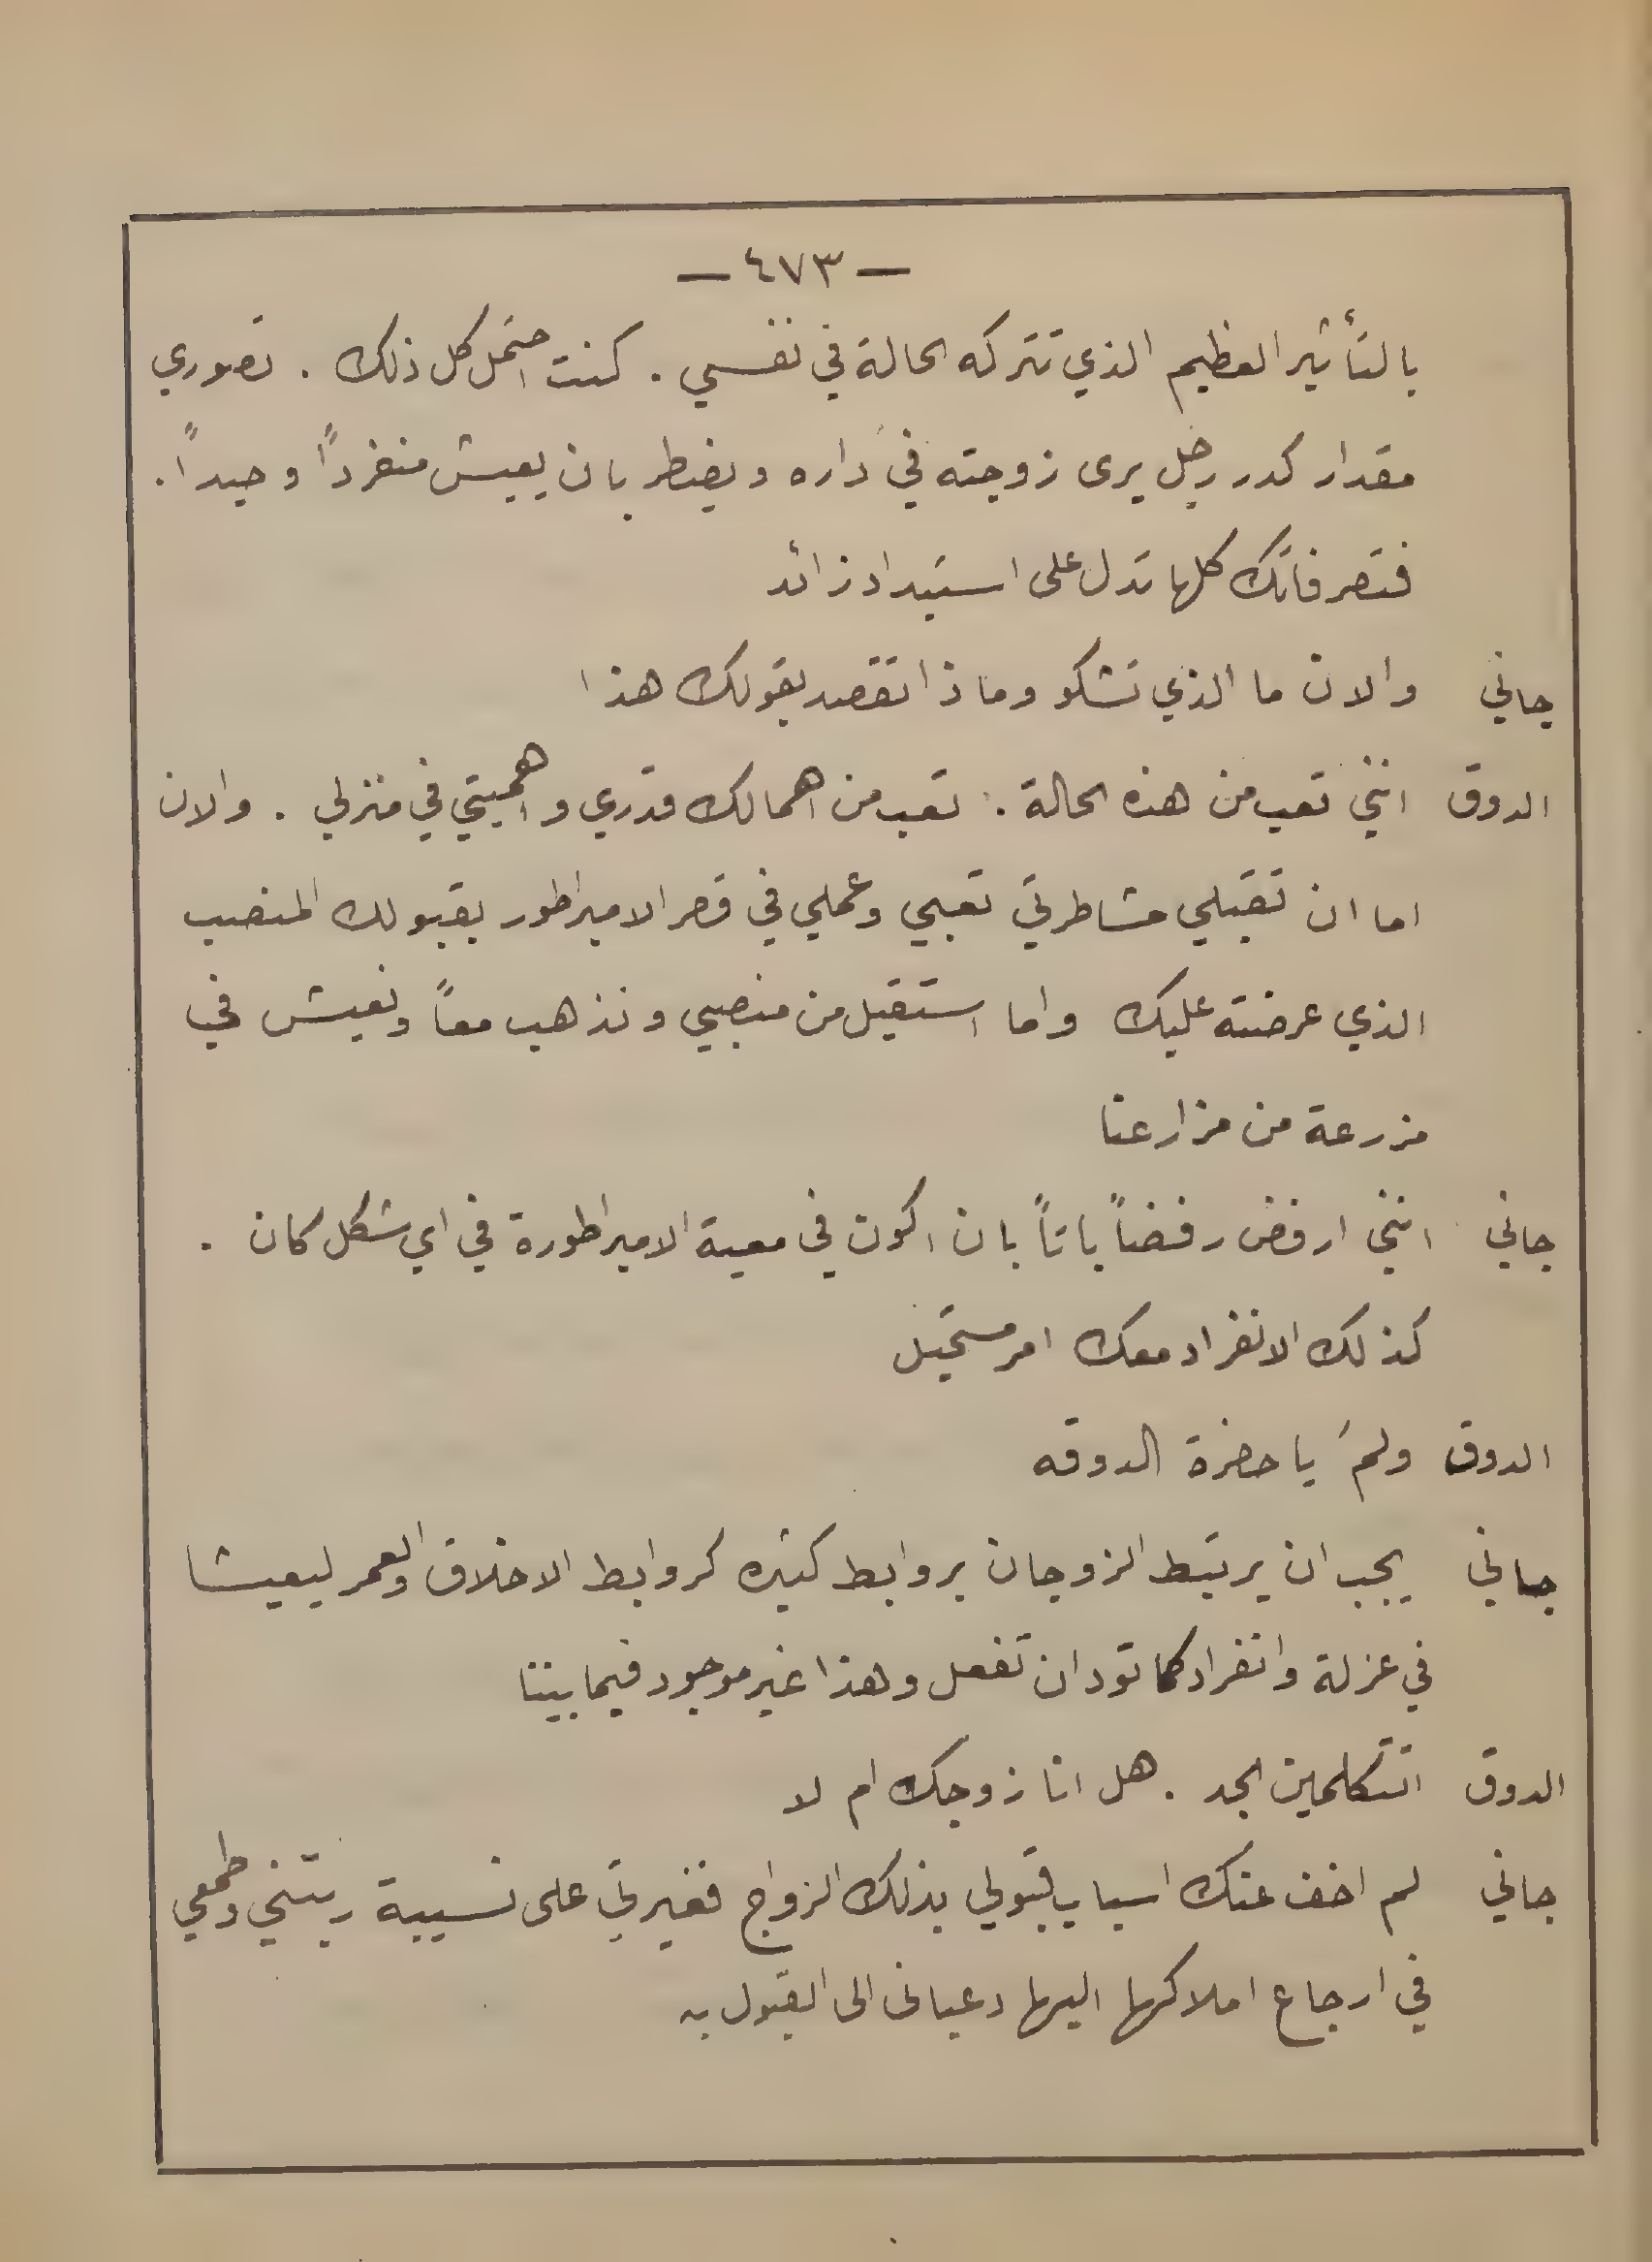 — ٤٧٣ —
بالتأثير العظيم الذي تتركه الحالة في نفسي . كنت احتمل كل ذلك . تصوري
مقدار كدر رجل يرى زوجته في داره ويضطر بان يعيش منفرداً وحيداً .
فتصرفاتك كلها تدل على استبداد زائد
جاني والان ما الذي تشكو وماذا تقصد بقولك هذا
الدوق انني تعب من هذه الحالة . تعب من اهمالك قدري واهميتي في منزلي . والان
اما ان تقبلي مشاطرتي تعبي وعملي في قصر الامبراطور بقبولك المنصب
الذي عرضته عليك واما استقيل من منصبي ونذهب معاً ونعيش في
مزرعة من مزارعنا
جاني انني ارفض رفضاً باتاً بان اكون في معية الامبراطورة في اي شكل كان .
كذلك الانفراد معك امر مستحيل
الدوق ولمَ يا حضرة الدوقه
جاني يجب ان يرتبط الزوجان بروابط كثيره كروابط الاخلاق والعمر ليعيشا
في عزلة وانفراد كما تود ان تفعل وهذا غير موجود فيما بيننا
الدوق اتتكلمين الجد . هل انا زوجك ام لا
جاني لم اخف عنك اسباب قبولي بذلك الزواج فغيرتي على نسيبة ربتني وطمعي
في ارجاع املاكها اليها دعياني الى القبول به